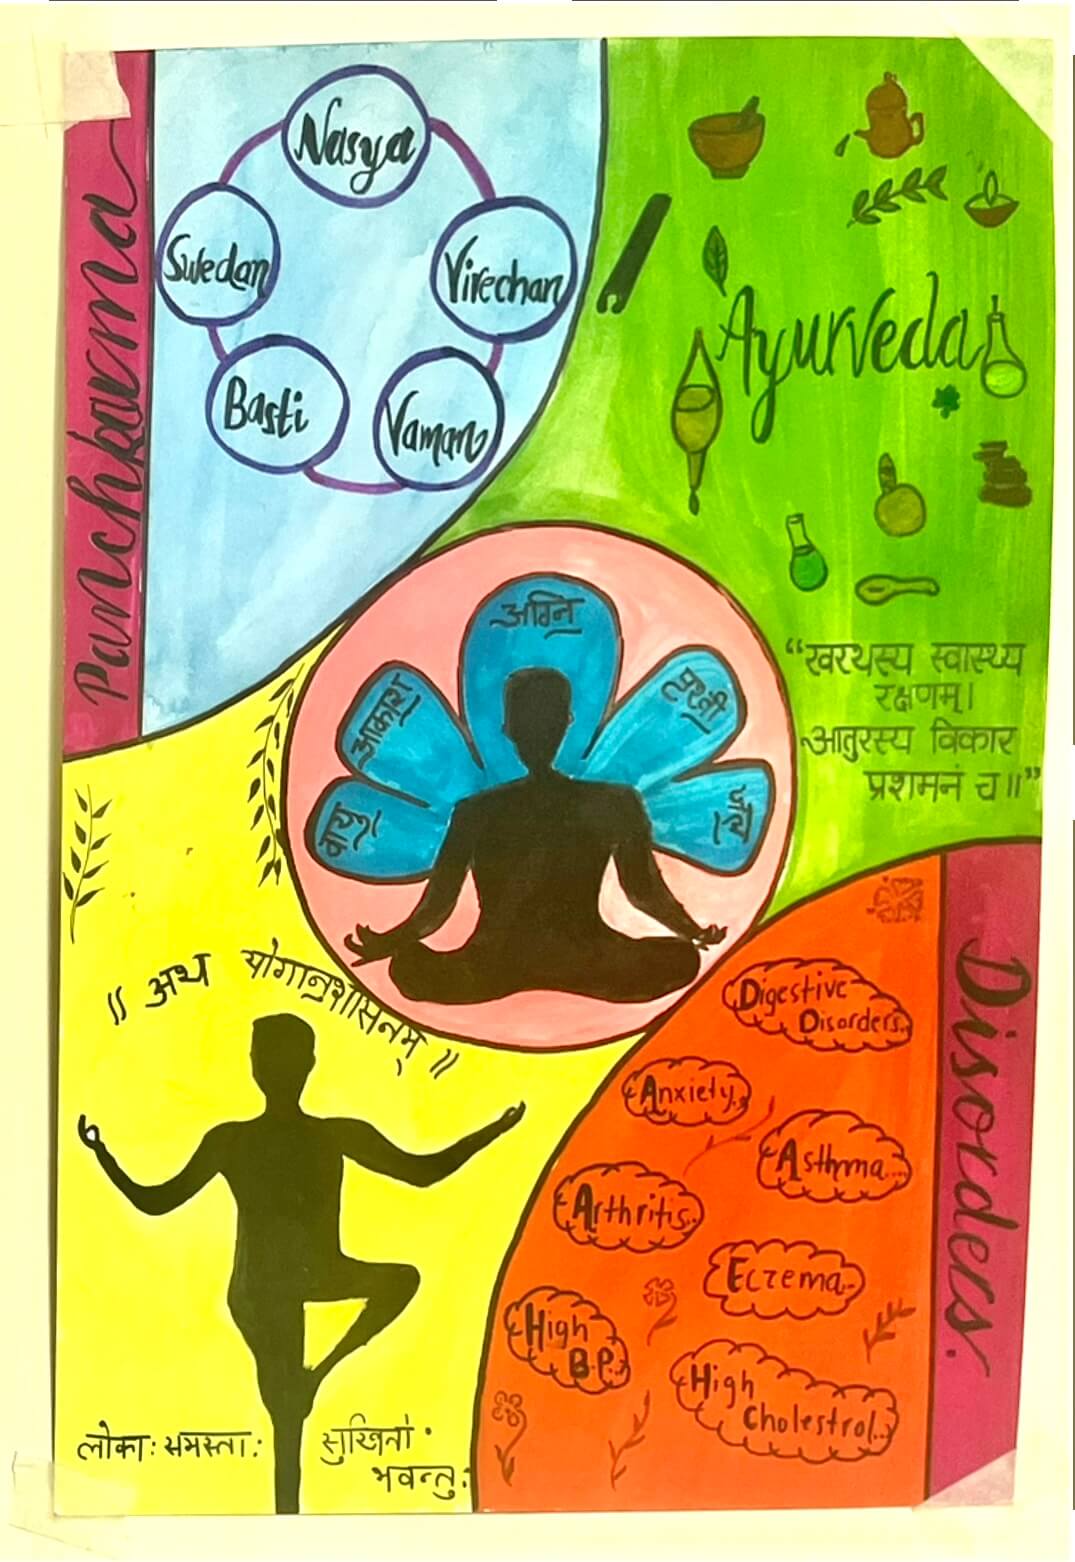 Panchkarma
Nasya
Swedan
Virechan
Basti
Vaman
Ayurveda
अग्नि
आकाश
पृथ्वी
वायु
"स्वस्थस्य स्वास्थ्य
रक्षणम्।
आतुरस्य विकार
प्रशमनं च॥"
॥ अथ योगानुशासनम् ॥
Disorders.
Digestive
Disorders..
Anxiety..
Asthma...
Arthritis..
Eczema..
High
B.P...
High
Cholestrol..
लोका: समस्ता: सुखिनो
भवन्तु: